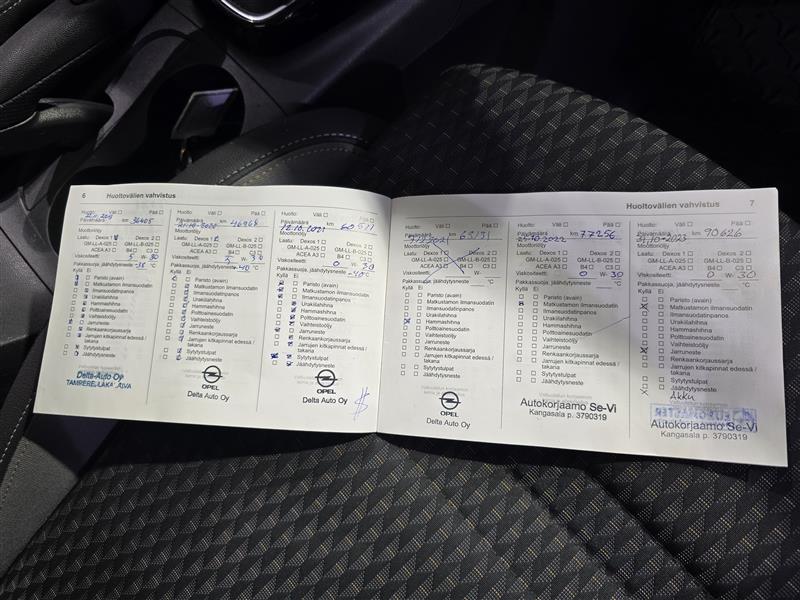 6 Huoltovälien vahvistus
Huolto: Väli ☐ Pää ☐
Päivämäärä km 36405
Moottoriöljy
Laatu: Dexos 1 Dexos 2 ☐
GM-LL-A-025 ☐ GM-LL-B-025 ☐
ACEA A3 ☐ B4 ☐ C3 ☐
Viskositeetti: 5 W- 30
Pakkassuoja, jäähdytysneste °C
Kyllä Ei
Paristo (avain)
Matkustamon ilmansuodatin
Ilmansuodatinpanos
Urakilahihna
Hammashihna
Polttoainesuodatin
Vaihteistoöljy
Jarruneste
Renkaankorjaussarja
Jarrujen kitkapinnat edessä /
takana
Sytytystulpat
Jäähdytysneste
Delta-Auto Oy
Huolto: Väli ☐ Pää ☐
Päivämäärä km 46968
21.10.2020
Moottoriöljy
Laatu: Dexos 1 Dexos 2 ☐
GM-LL-A-025 ☐ GM-LL-B-025 ☐
ACEA A3 ☐ B4 ☐ C3 ☐
Viskositeetti: W- 30
Pakkassuoja, jäähdytysneste -40 °C
Kyllä Ei
Paristo (avain)
Matkustamon ilmansuodatin
Ilmansuodatinpanos
Urakilahihna
Hammashihna
Polttoainesuodatin
Vaihteistoöljy
Jarruneste
Renkaankorjaussarja
Jarrujen kitkapinnat edessä /
takana
Sytytystulpat
Jäähdytysneste
OPEL
Delta Auto Oy
Huolto: Väli ☐ Pää ☐
Päivämäärä km 60511
12.10.2021
Moottoriöljy
Laatu: Dexos 1 ☐ Dexos 2 ☐
GM-LL-A-025 ☐ GM-LL-B-025 ☐
ACEA A3 ☐ B4 ☐ C3 ☐
Viskositeetti: 0 W- 30
Pakkassuoja, jäähdytysneste -40 °C
Kyllä Ei
Paristo (avain)
Matkustamon ilmansuodatin
Ilmansuodatinpanos
Urakilahihna
Hammashihna
Polttoainesuodatin
Vaihteistoöljy
Jarruneste
Renkaankorjaussarja
Jarrujen kitkapinnat edessä /
takana
Sytytystulpat
Jäähdytysneste
OPEL
Delta Auto Oy
Huoltovälien vahvistus 7
Huolto: Väli ☐ Pää ☐
Päivämäärä km 65131
Moottoriöljy
Laatu: Dexos 1 ☐ Dexos 2 ☐
GM-LL-A-025 ☐ GM-LL-B-025 ☐
ACEA A3 ☐ B4 ☐ C3 ☐
Viskositeetti: W-
Pakkassuoja, jäähdytysneste °C
Kyllä Ei
Paristo (avain)
Matkustamon ilmansuodatin
Ilmansuodatinpanos
Urakilahihna
Hammashihna
Polttoainesuodatin
Vaihteistoöljy
Jarruneste
Renkaankorjaussarja
Jarrujen kitkapinnat edessä /
takana
Sytytystulpat
Jäähdytysneste
OPEL
Delta Auto Oy
Huolto: Väli ☐ Pää ☐
Päivämäärä km 77256
25.10.2022
Moottoriöljy
Laatu: Dexos 1 ☐ Dexos 2 ☐
GM-LL-A-025 ☐ GM-LL-B-025 ☐
ACEA A3 ☐ B4 ☐ C3 ☐
Viskositeetti: 0 W- 30
Pakkassuoja, jäähdytysneste °C
Kyllä Ei
Paristo (avain)
Matkustamon ilmansuodatin
Ilmansuodatinpanos
Urakilahihna
Hammashihna
Polttoainesuodatin
Vaihteistoöljy
Jarruneste
Renkaankorjaussarja
Jarrujen kitkapinnat edessä /
takana
Sytytystulpat
Jäähdytysneste
Autokorjaamo Se-Vi
Kangasala p. 3790319
Huolto: Väli ☐ Pää ☐
Päivämäärä km 90626
31.10.2023
Moottoriöljy
Laatu: Dexos 1 ☐ Dexos 2 ☐
GM-LL-A-025 ☐ GM-LL-B-025 ☐
ACEA A3 ☐ B4 ☐ C3 ☐
Viskositeetti: 0 W- 30
Pakkassuoja, jäähdytysneste °C
Kyllä Ei
Paristo (avain)
Matkustamon ilmansuodatin
Ilmansuodatinpanos
Urakilahihna
Hammashihna
Polttoainesuodatin
Vaihteistoöljy
Jarruneste
Renkaankorjaussarja
Jarrujen kitkapinnat edessä /
takana
Sytytystulpat
Jäähdytysneste
Akku
EUROMASTER
Autokorjaamo Se-Vi
Kangasala p. 3790319